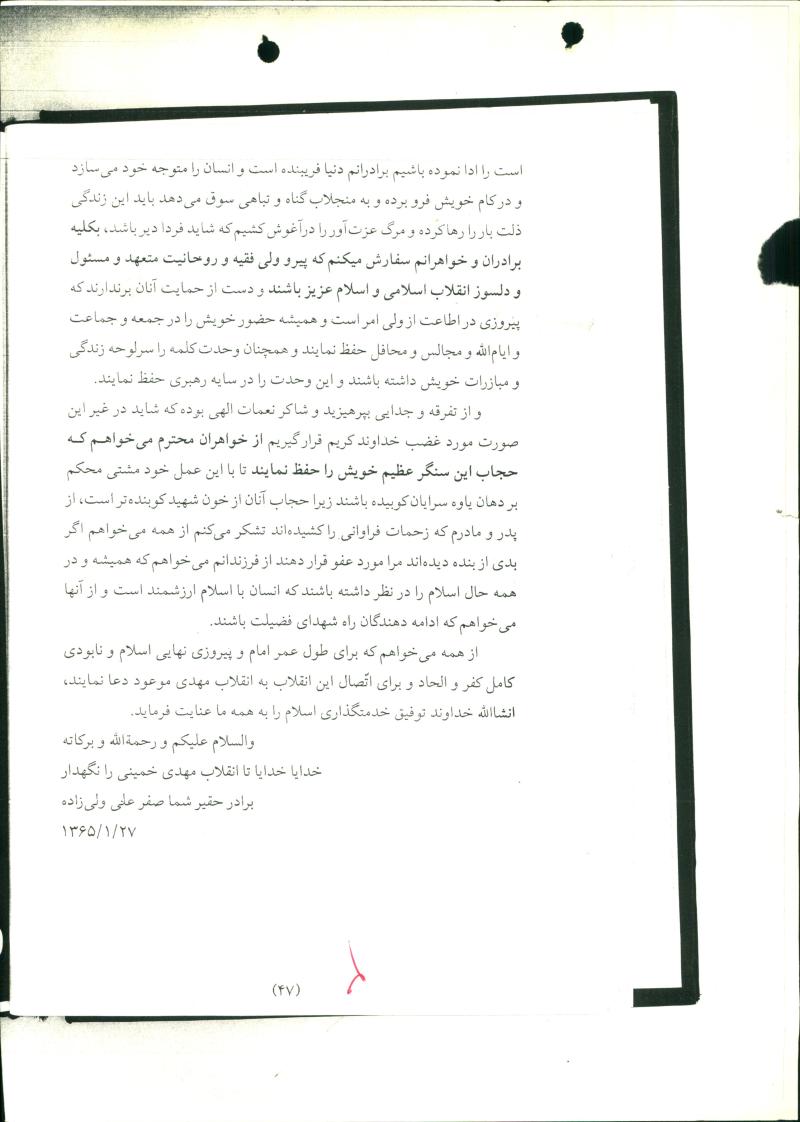 است را ادا نموده باشیم برادرانم دنیا فریبنده است و انسان را متوجه خود می‌سازد
و در کام خویش فرو برده و به منجلاب گناه و تباهی سوق می‌دهد باید این زندگی
ذلت بار را رها کرده و مرگ عزت‌آور را درآغوش کشیم که شاید فردا دیر باشد، بکلیه
برادران و خواهرانم سفارش میکنم که پیرو ولی فقیه و روحانیت متعهد و مسئول
و دلسوز انقلاب اسلامی و اسلام عزیز باشند و دست از حمایت آنان برندارند که
پیروزی در اطاعت از ولی امر است و همیشه حضور خویش را در جمعه و جماعت
و ایام‌الله و مجالس و محافل حفظ نمایند و همچنان وحدت کلمه را سرلوحه زندگی
و مبازرات خویش داشته باشند و این وحدت را در سایه رهبری حفظ نمایند.
و از تفرقه و جدایی بپرهیزید و شاکر نعمات الهی بوده که شاید در غیر این
صورت مورد غضب خداوند کریم قرار گیریم از خواهران محترم می‌خواهم که
حجاب این سنگر عظیم خویش را حفظ نمایند تا با این عمل خود مشتی محکم
بر دهان یاوه سرایان کوبیده باشند زیرا حجاب آنان از خون شهید کوبنده‌تر است، از
پدر و مادرم که زحمات فراوانی را کشیده‌اند تشکر می‌کنم از همه می‌خواهم اگر
بدی از بنده دیده‌اند مرا مورد عفو قرار دهند از فرزندانم می‌خواهم که همیشه و در
همه حال اسلام را در نظر داشته باشند که انسان با اسلام ارزشمند است و از آنها
می‌خواهم که ادامه دهندگان راه شهدای فضیلت باشند.
از همه می‌خواهم که برای طول عمر امام و پیروزی نهایی اسلام و نابودی
کامل کفر و الحاد و برای اتّصال این انقلاب به انقلاب مهدی موعود دعا نمایند،
انشاالله خداوند توفیق خدمتگذاری اسلام را به همه ما عنایت فرماید.
والسلام علیکم و رحمةالله و برکاته
خدایا خدایا تا انقلاب مهدی خمینی را نگهدار
برادر حقیر شما صفر علی ولی‌زاده
۱۳۶۵/۱/۲۷
(۴۷)